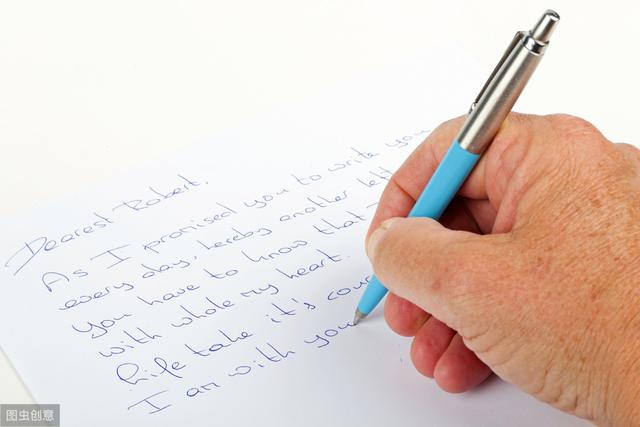 Dearest Robert,
As I promised you to write you
every day, hereby another lett
you have to know that I
with whole my heart.
Life take it's cour
I am with you
图虫创意